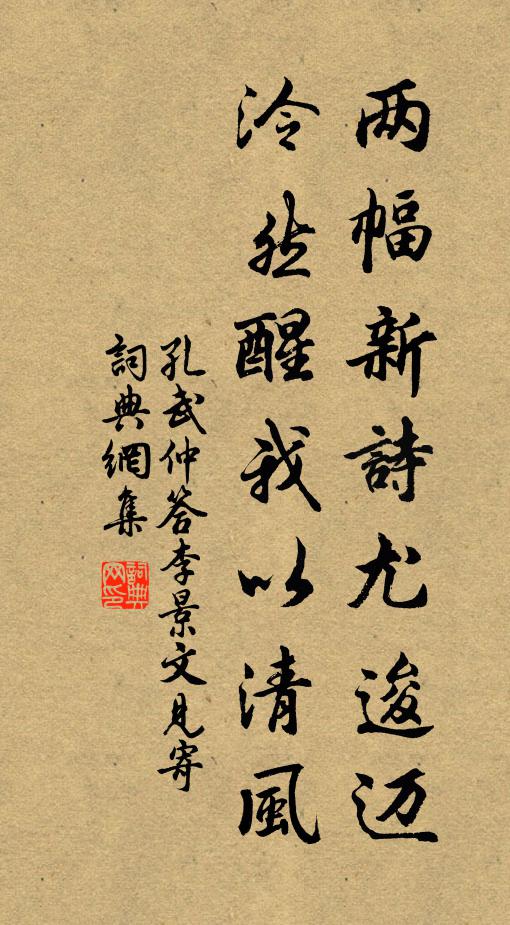 两幅新詩尤逡迈
泠然醒我以清風
孔武仲答李景文見寄
詞典網集
詞典网印